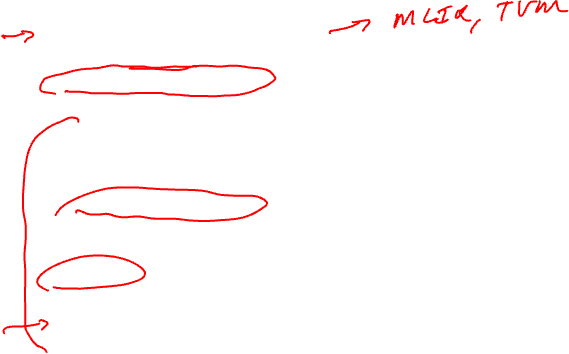 → MLIR, TVM